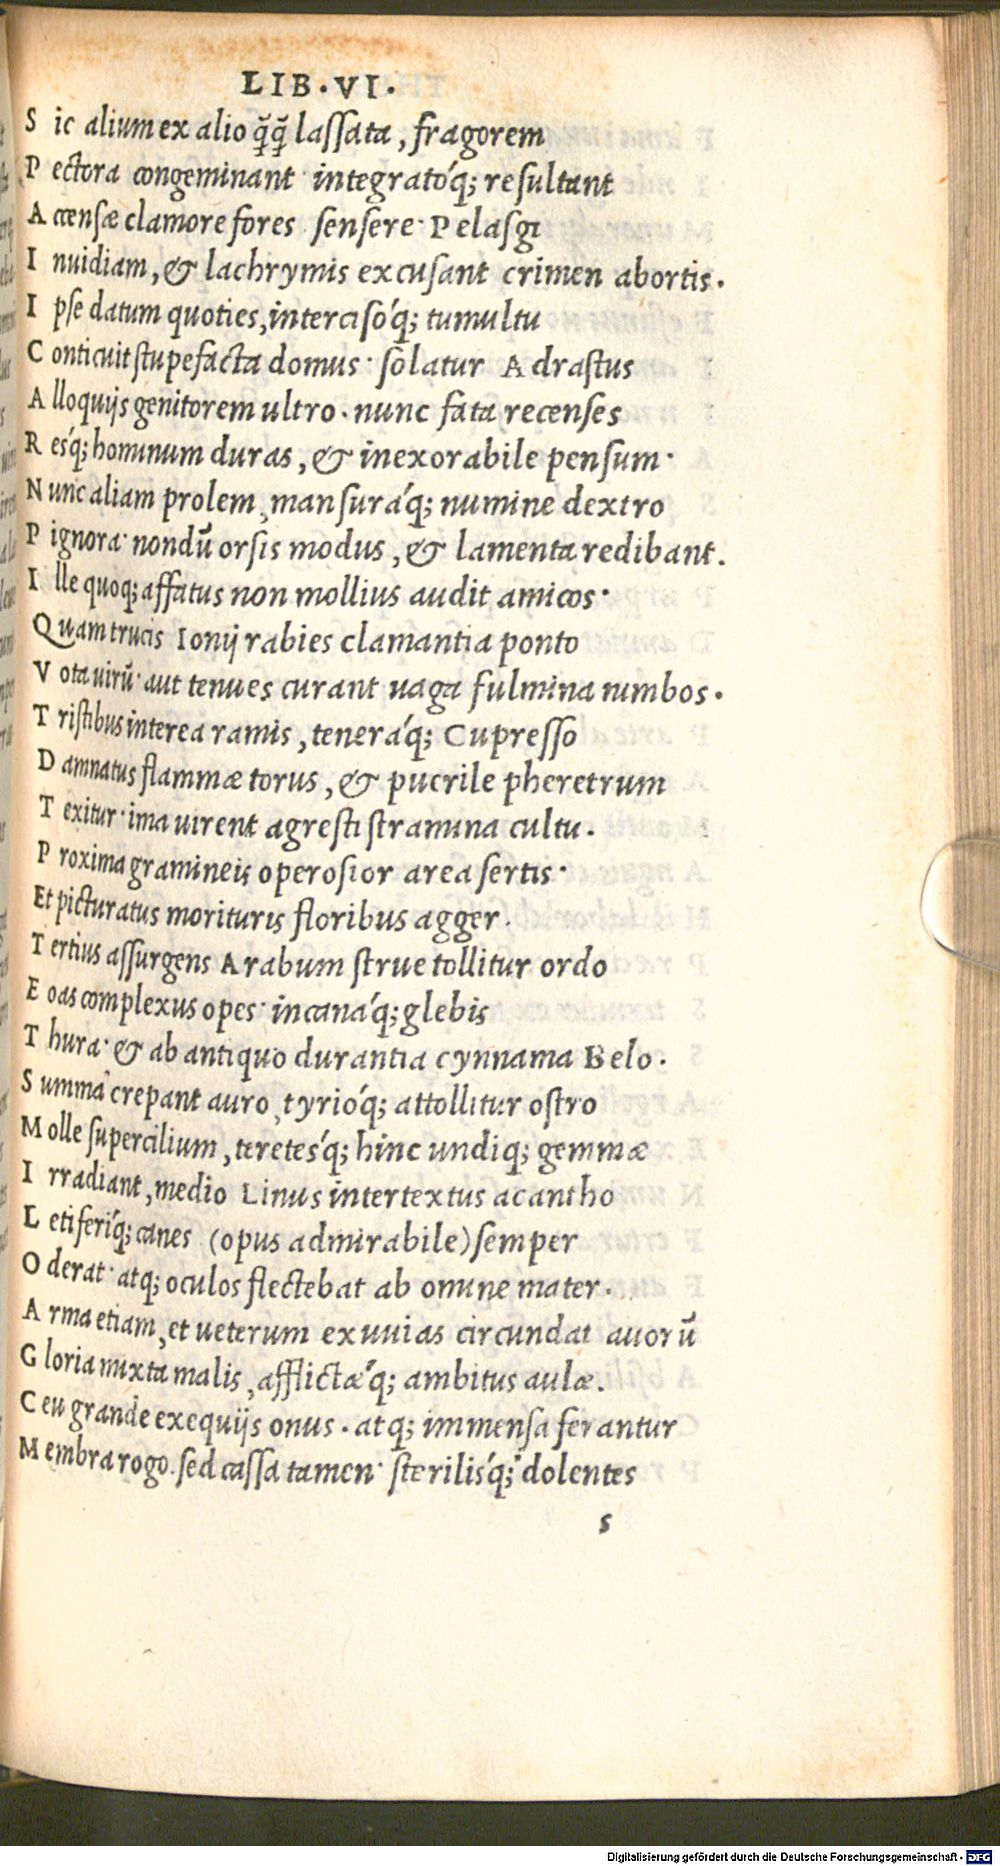 LIB.VI.
S ic alium ex alio q̃q̃ lassata, fragorem
P ectora congeminant· integratóq; resultant
A ccensæ clamore fores. sensere· Pelasgi
I nuidiam, & lachrymis excusant crimen abortis.
I pse datum quoties, intercisóq; tumultu
C onticuit stupefacta domus· solatur Adrastus
A lloquijs genitorem ultro. nunc fata recenses
R esq́; hominum duras, & inexorabile pensum·
N unc aliam prolem, mansuráq; numine dextro
P ignora· nondũ orsis modus, & lamenta redibant.
I lle quoq; affatus non mollius audit amicos·
Quam trucis Ionij rabies clamantia ponto
V ota uirũ· aut tenues curant uaga fulmina nimbos.
T ristibus interea ramis, teneráq; Cupresso
D amnatus flammæ torus, & puerile pheretrum
T exitur· ima uirent agresti stramina cultu.
P roxima gramineis operosior area sertis·
Et picturatus morituris floribus agger.
T ertius assurgens Arabum strue tollitur ordo
E oas complexus opes· incanáq; glebis
T hura· & ab antiquo durantia cynnama Belo.
S umma crepant auro, tyrióq; attollitur ostro
M olle supercilium, teretesq́; hinc undiq; gemmæ
I rradiant, medio Linus intertextus acantho
L etiferiq́; canes (opus admirabile) semper
O derat· atq; oculos flectebat ab omine mater.
A rma etiam, et ueterum exuuias circundat auorũ
G loria mixta malis, afflictæq́; ambitus aulæ.
C eu grande exequijs onus. atq; immensa ferantur
M embra rogo. sed cassa tamen· sterilisq́; dolentes
s
Digitalisierung gefördert durch die Deutsche Forschungsgemeinschaft - DFG